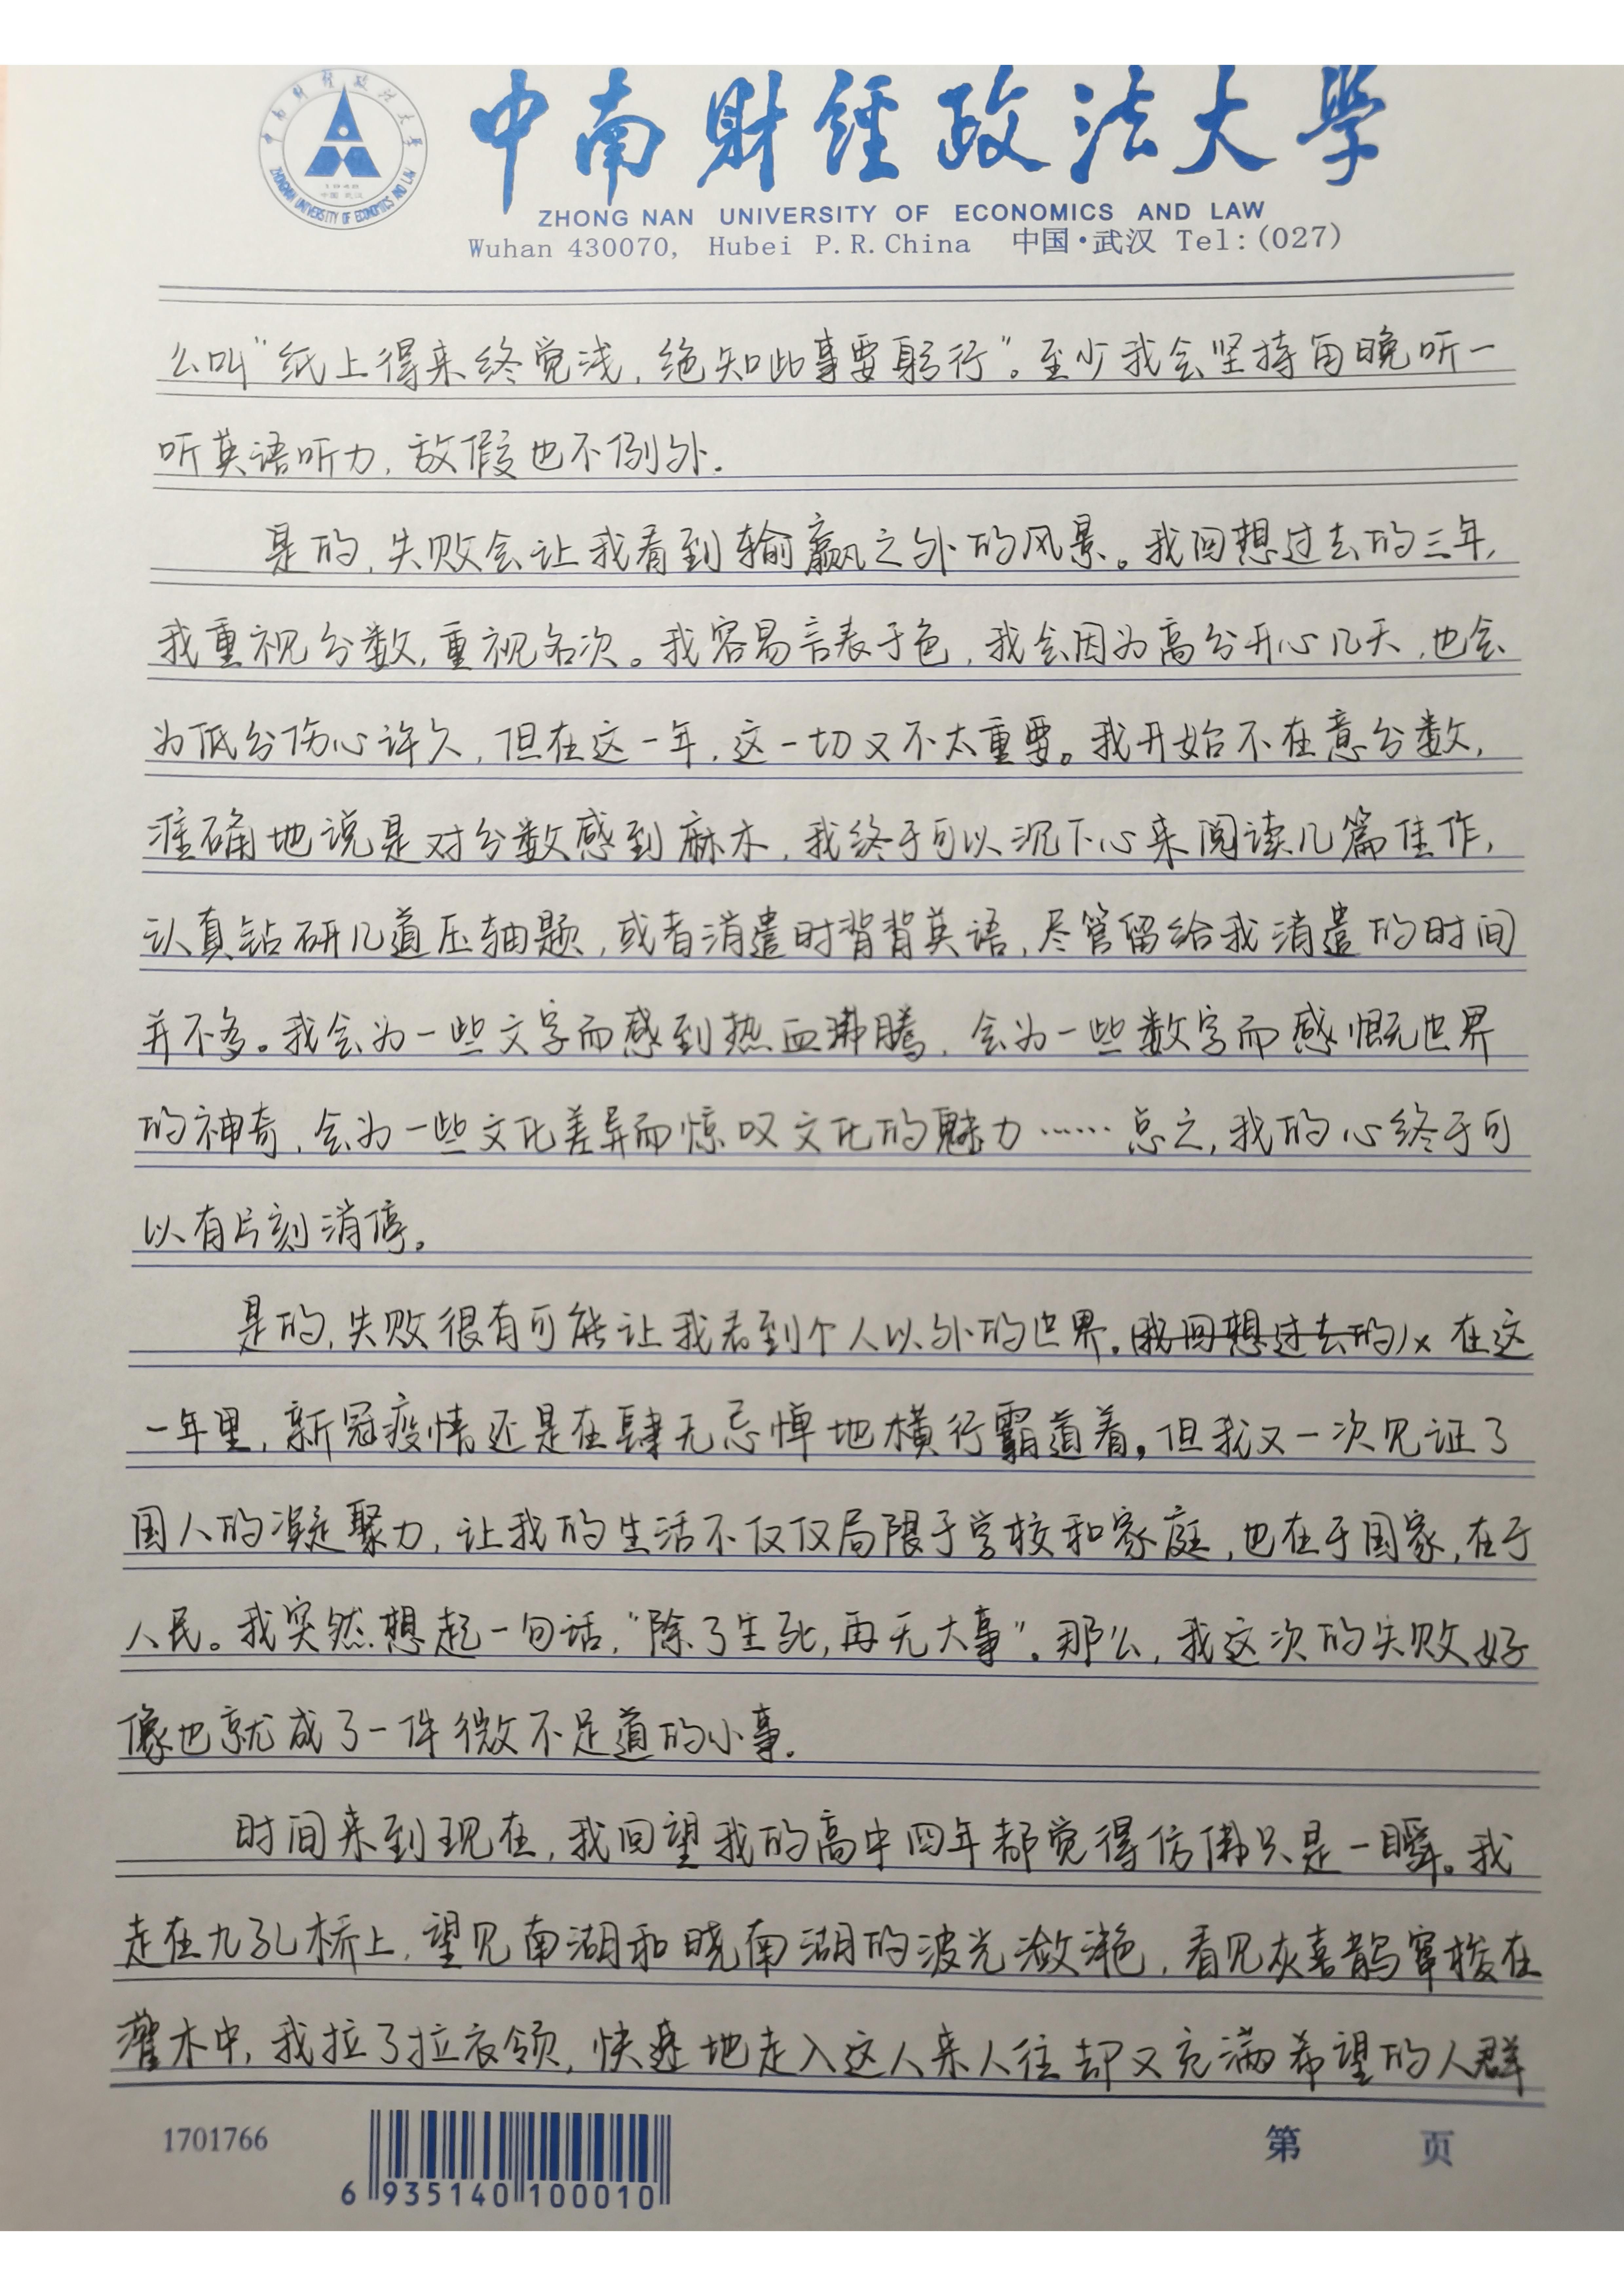 中南财经政法大学
ZHONGNAN UNIVERSITY OF ECONOMICS AND LAW
1948
中国·武汉
中南财经政法大学
ZHONG NAN UNIVERSITY OF ECONOMICS AND LAW
Wuhan 430070, Hubei P.R.China 中国·武汉 Tel:(027)
么叫“纸上得来终觉浅，绝知此事要躬行”。至少我会坚持每晚听一
听英语听力，放假也不例外.
是的，失败会让我看到输赢之外的风景。我回想过去的三年，
我重视分数，重视名次。我容易言表于色，我会因为高分开心几天，也会
为低分伤心许久，但在这一年，这一切又不太重要。我开始不在意分数，
准确地说是对分数感到麻木，我终于可以沉下心来阅读几篇佳作，
认真钻研几道压轴题，或者消遣时背背英语，尽管留给我消遣的时间
并不多。我会为一些文字而感到热血沸腾，会为一些数字而感慨世界
的神奇，会为一些文化差异而惊叹文化的魅力……总之，我的心终于可
以有片刻消停。
是的，失败很有可能让我看到个人以外的世界。(我回想过去的)× 在这
一年里，新冠疫情还是在肆无忌惮地横行霸道着，但我又一次见证了
国人的凝聚力，让我的生活不仅仅局限于学校和家庭，也在于国家，在于
人民。我突然想起一句话，“除了生死，再无大事”。那么，我这次的失败好
像也就成了一件微不足道的小事.
时间来到现在，我回望我的高中四年都觉得仿佛只是一瞬。我
走在九孔桥上，望见南湖和晓南湖的波光潋滟，看见灰喜鹊穿梭在
灌木中，我拉了拉衣领，快速地走入这人来人往却又充满希望的人群
1701766
6 935140 100010
第 页